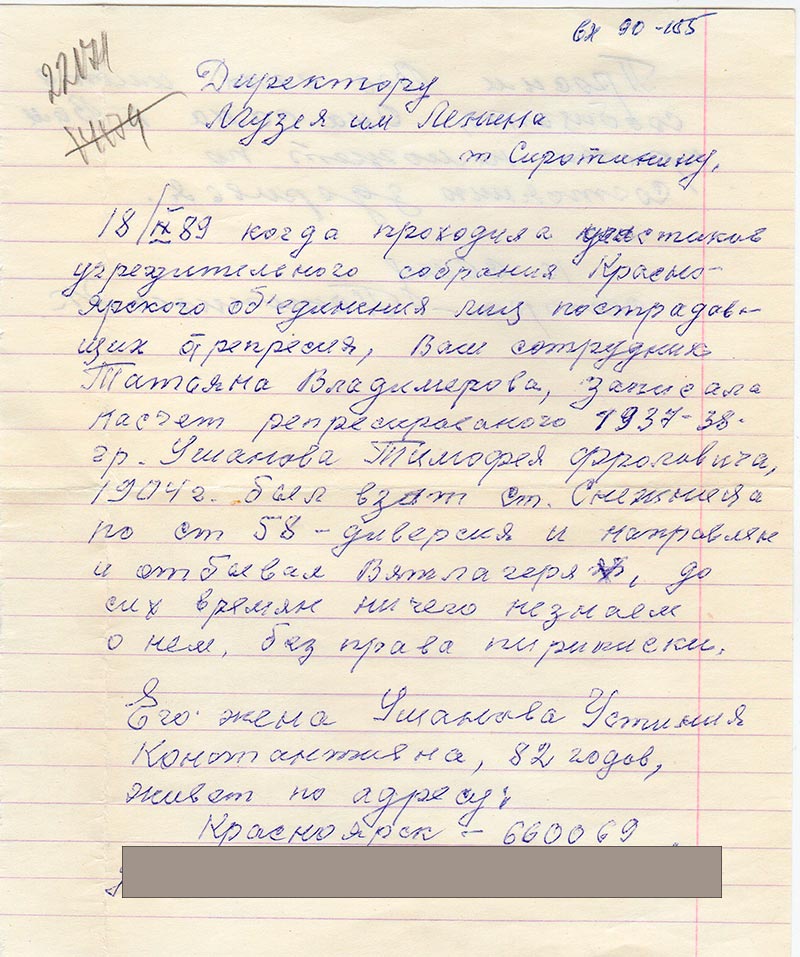 вх 90-155
22171
Директору
Музея им Ленина
т Сиротинину,
18/IX 89 когда проходила участиков
учредительного собрания Красно-
ярского об'единения лиц пострадов-
щих от репресия, Ваш сотрудник
Татаяна Владимерова, записала
насчет репресированого 1937-38-
гр. Ушанова Тимофея Фроловича,
1904г. был взят ст. Снежница
по ст 58 - диверсия и направлян
и отбывал Вятлагеря, до
сих времян ничего незнаем
о нем, без права пириписки.
Его жена Ушанова Устиния
Константияна, 82 годов,
живет по адресу:
Красноярск - 660069